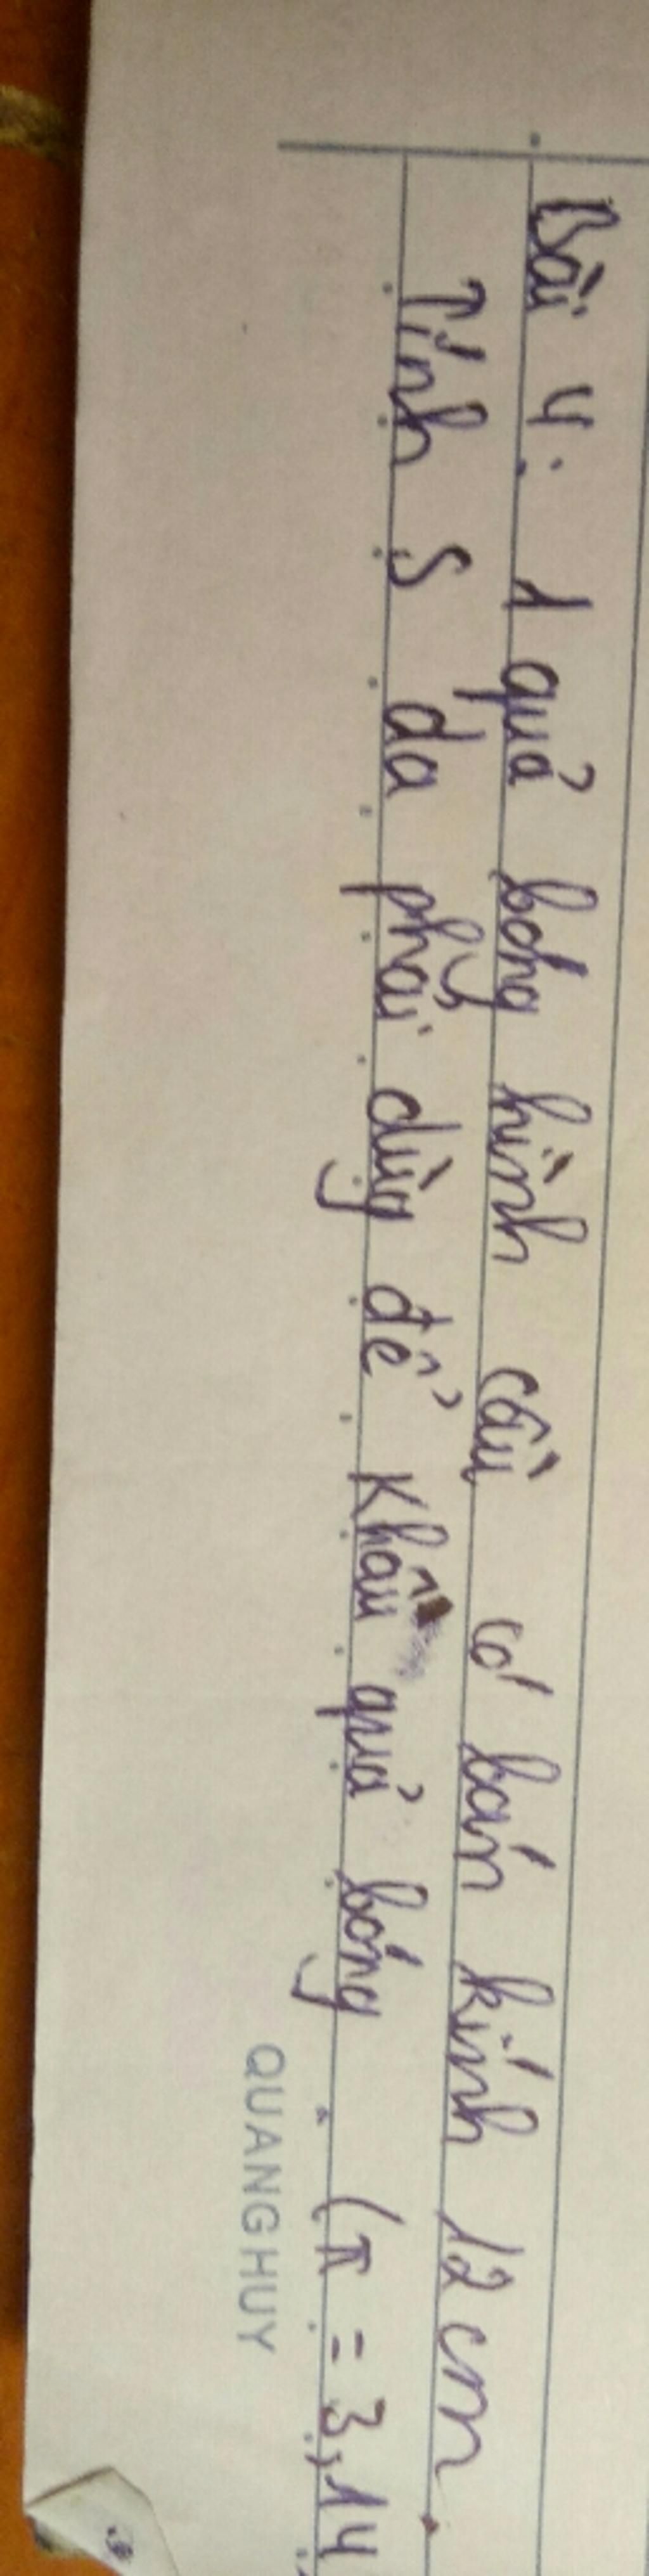 Bài 4: 1 quả bóng hình cầu có bán kính 12 cm.
Tính S da phải dùng để khâu quả bóng (π = 3,14
QUANG HUY